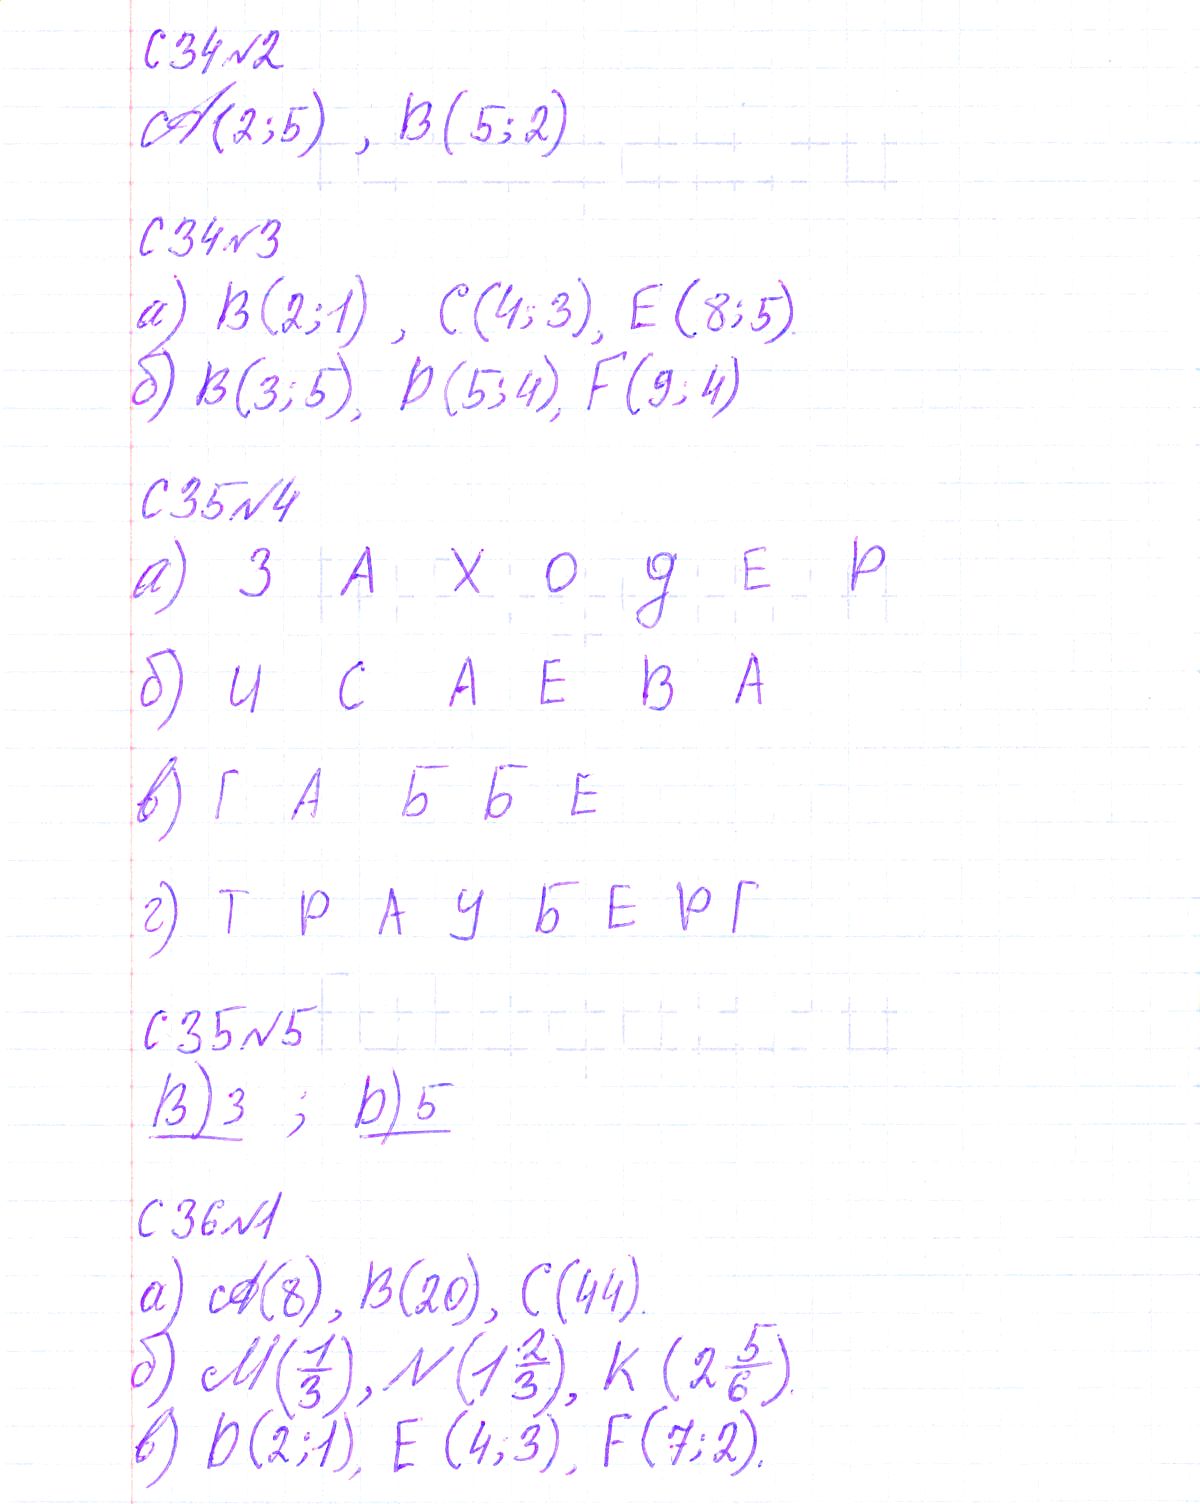 С34№2
А(2;5), В(5;2)
С34№3
а) В(2;1), С(4;3), Е(8;5).
б) В(3;5), D(5;4), F(9;4)
С35№4
а) З А Х О Д Е Р
б) И С А Е В А
в) Г А Б Б Е
г) Т Р А У Б Е Р Г
С35№5
В) 3 ; D) 5
С36№1
а) А(8), В(20), С(44).
б) М(1/3), N(1 2/3), К(2 5/6).
в) D(2;1), Е(4;3), F(7;2).